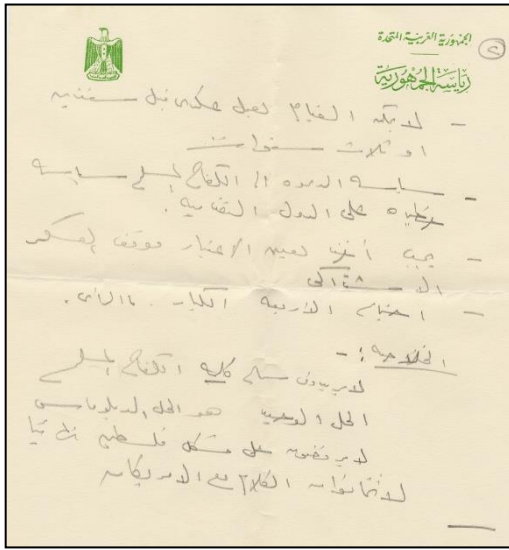 الجمهورية العربية المتحدة
رياسة الجمهورية
٢
- لا يمكن القيام بعمل عسكرى قبل سنتين
او ثلاث سنوات
- سياسة الدعوه الى الكفاح المسلح سياسة
على الدول التقدمية .
- يجب أخذ بعين الاعتبار موقف المعسكر
الاشتراكى
- اجتماع الأربعة الكبار .
الخلاصة :-
لا يريدون سماع كلمة الكفاح المسلح
الحل الوحيد هو الحل الدبلوماسى
لا يرفضون حل مشكل فلسطين
الكلام مع الامريكان